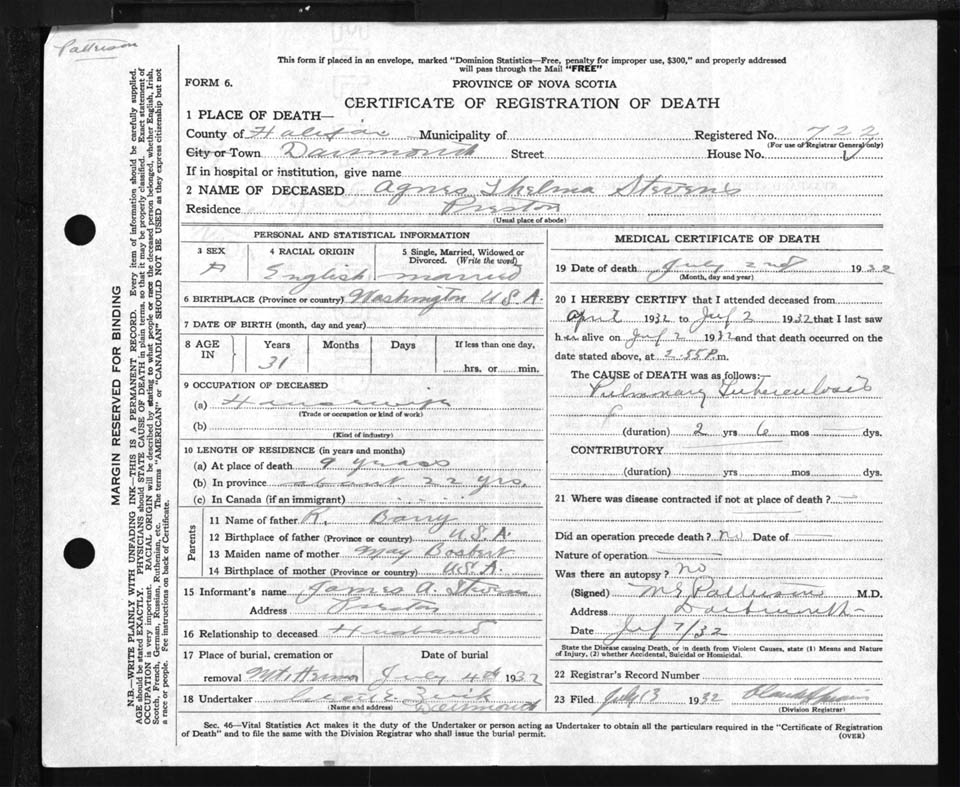 Pattison
This form if placed in an envelope, marked "Dominion Statistics—Free, penalty for improper use, $300," and properly addressed
will pass through the Mail "FREE"
FORM 6.
PROVINCE OF NOVA SCOTIA
CERTIFICATE OF REGISTRATION OF DEATH
1 PLACE OF DEATH—
County of Halifax Municipality of Registered No. 722
(For use of Registrar General only)
City or Town Dartmouth Street House No.
If in hospital or institution, give name
2 NAME OF DECEASED Agnes Thelma Stevens
Residence Preston
(Usual place of abode)
PERSONAL AND STATISTICAL INFORMATION
3 SEX 4 RACIAL ORIGIN 5 Single, Married, Widowed or
Divorced. (Write the word)
English married
6 BIRTHPLACE (Province or country) Washington U.S.A.
7 DATE OF BIRTH (month, day and year)
8 AGE IN Years Months Days If less than one day,
31 hrs. or min.
9 OCCUPATION OF DECEASED
(a) Housewife
(Trade or occupation or kind of work)
(b)
(Kind of industry)
10 LENGTH OF RESIDENCE (in years and months)
(a) At place of death 9 years
(b) In province about 22 yrs.
(c) In Canada (if an immigrant)
Parents
11 Name of father R. Barry
12 Birthplace of father (Province or country) U.S.A.
13 Maiden name of mother May
14 Birthplace of mother (Province or country) U.S.A.
15 Informant's name James A. Stevens
Address Preston
16 Relationship to deceased Husband
17 Place of burial, cremation or Date of burial
removal Mt. Hermon July 4th 1932
18 Undertaker Zwicker
(Name and address) Dartmouth
MEDICAL CERTIFICATE OF DEATH
19 Date of death July 2nd 1932
(Month, day and year)
20 I HEREBY CERTIFY that I attended deceased from
April 1932 to July 2 1932 that I last saw
her alive on July 2 1932 and that death occurred on the
date stated above, at 2.55 P.m.
The CAUSE of DEATH was as follows:—
Pulmonary Tuberculosis
(duration) 2 yrs 6 mos dys.
CONTRIBUTORY
(duration) yrs mos dys.
21 Where was disease contracted if not at place of death?
Did an operation precede death? no Date of
Nature of operation
Was there an autopsy? no
(Signed) Pattison M.D.
Address Dartmouth
Date July 7/32
State the Disease causing Death, or in death from Violent Causes, state (1) Means and Nature
of Injury, (2) whether Accidental, Suicidal or Homicidal.
22 Registrar's Record Number
23 Filed July 13 1932
(Division Registrar)
Sec. 46—Vital Statistics Act makes it the duty of the Undertaker or person acting as Undertaker to obtain all the particulars required in the "Certificate of Registration
of Death" and to file the same with the Division Registrar who shall issue the burial permit.
(OVER)
MARGIN RESERVED FOR BINDING
N.B.—WRITE PLAINLY WITH UNFADING INK—THIS IS A PERMANENT RECORD. Every item of information should be carefully supplied.
AGE should be stated EXACTLY. PHYSICIANS should STATE CAUSE OF DEATH in plain terms, so that it may be properly classified. Exact statement of
OCCUPATION is very important. RACIAL ORIGIN will be described by stating to what people or race the deceased person belonged, whether English, Irish,
Scotch, French, German, Russian, Ruthenian, etc. The terms "AMERICAN" or "CANADIAN" SHOULD NOT BE USED as they express citizenship but not
a race or people. Fee instructions on back of Certificate.